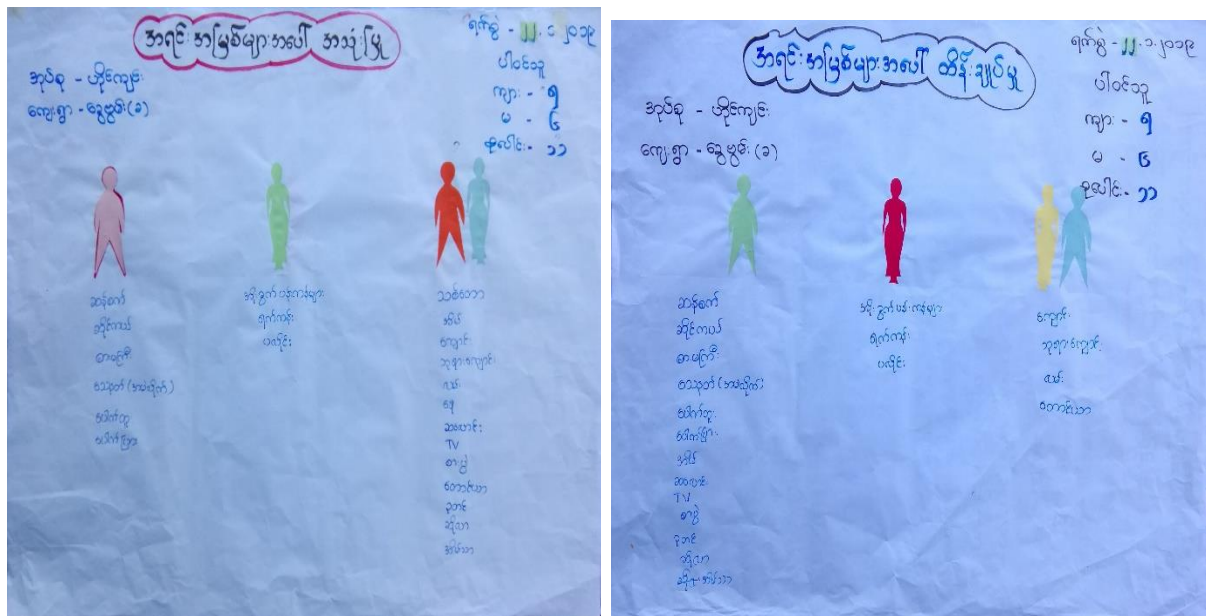 အရင်းအမြစ်များအပေါ် အသုံးပြု
ရက်စွဲ - ၂၂.၁.၂၀၁၉
ပါဝင်သူ
ကျား - ၅
မ - ၆
စုပေါင်း - ၁၁
အုပ်စု - ဟိုင်ကျင်း
ကျေးရွာ - ခွေဗွမ်း(ခ)
ဆန်စက်
ဆိုင်ကယ်
ဓားမကြီး
သေနတ် (အမဲလိုက်)
ပေါက်တူး
ပေါက်ပြား
အိုးခွက်ပန်းကန်များ
ရက်ကန်း
ပလိုင်း
သစ်တော
အိမ်
ကျောင်း
ဘုရားကျောင်း
လမ်း
ရေ
ဆလောင်း
TV
စားပွဲ
တောင်ယာ
ခုတင်
ဆိုလာ
အိမ်သာ
အရင်းအမြစ်များအပေါ် ထိန်းချုပ်မှု
ရက်စွဲ - ၂၂.၁.၂၀၁၉
ပါဝင်သူ
ကျား - ၅
မ - ၆
စုပေါင်း - ၁၁
အုပ်စု - ဟိုင်ကျင်း
ကျေးရွာ - ခွေဗွမ်း(ခ)
ဆန်စက်
ဆိုင်ကယ်
ဓားမကြီး
သေနတ် (အမဲလိုက်)
ပေါက်တူး
ပေါက်ပြား
အိမ်
ဆလောင်း
TV
စားပွဲ
ခုတင်
ဆိုလာ
အိမ်သာ
အိုးခွက်ပန်းကန်များ
ရက်ကန်း
ပလိုင်း
ကျောင်း
ဘုရားကျောင်း
လမ်း
တောင်ယာ